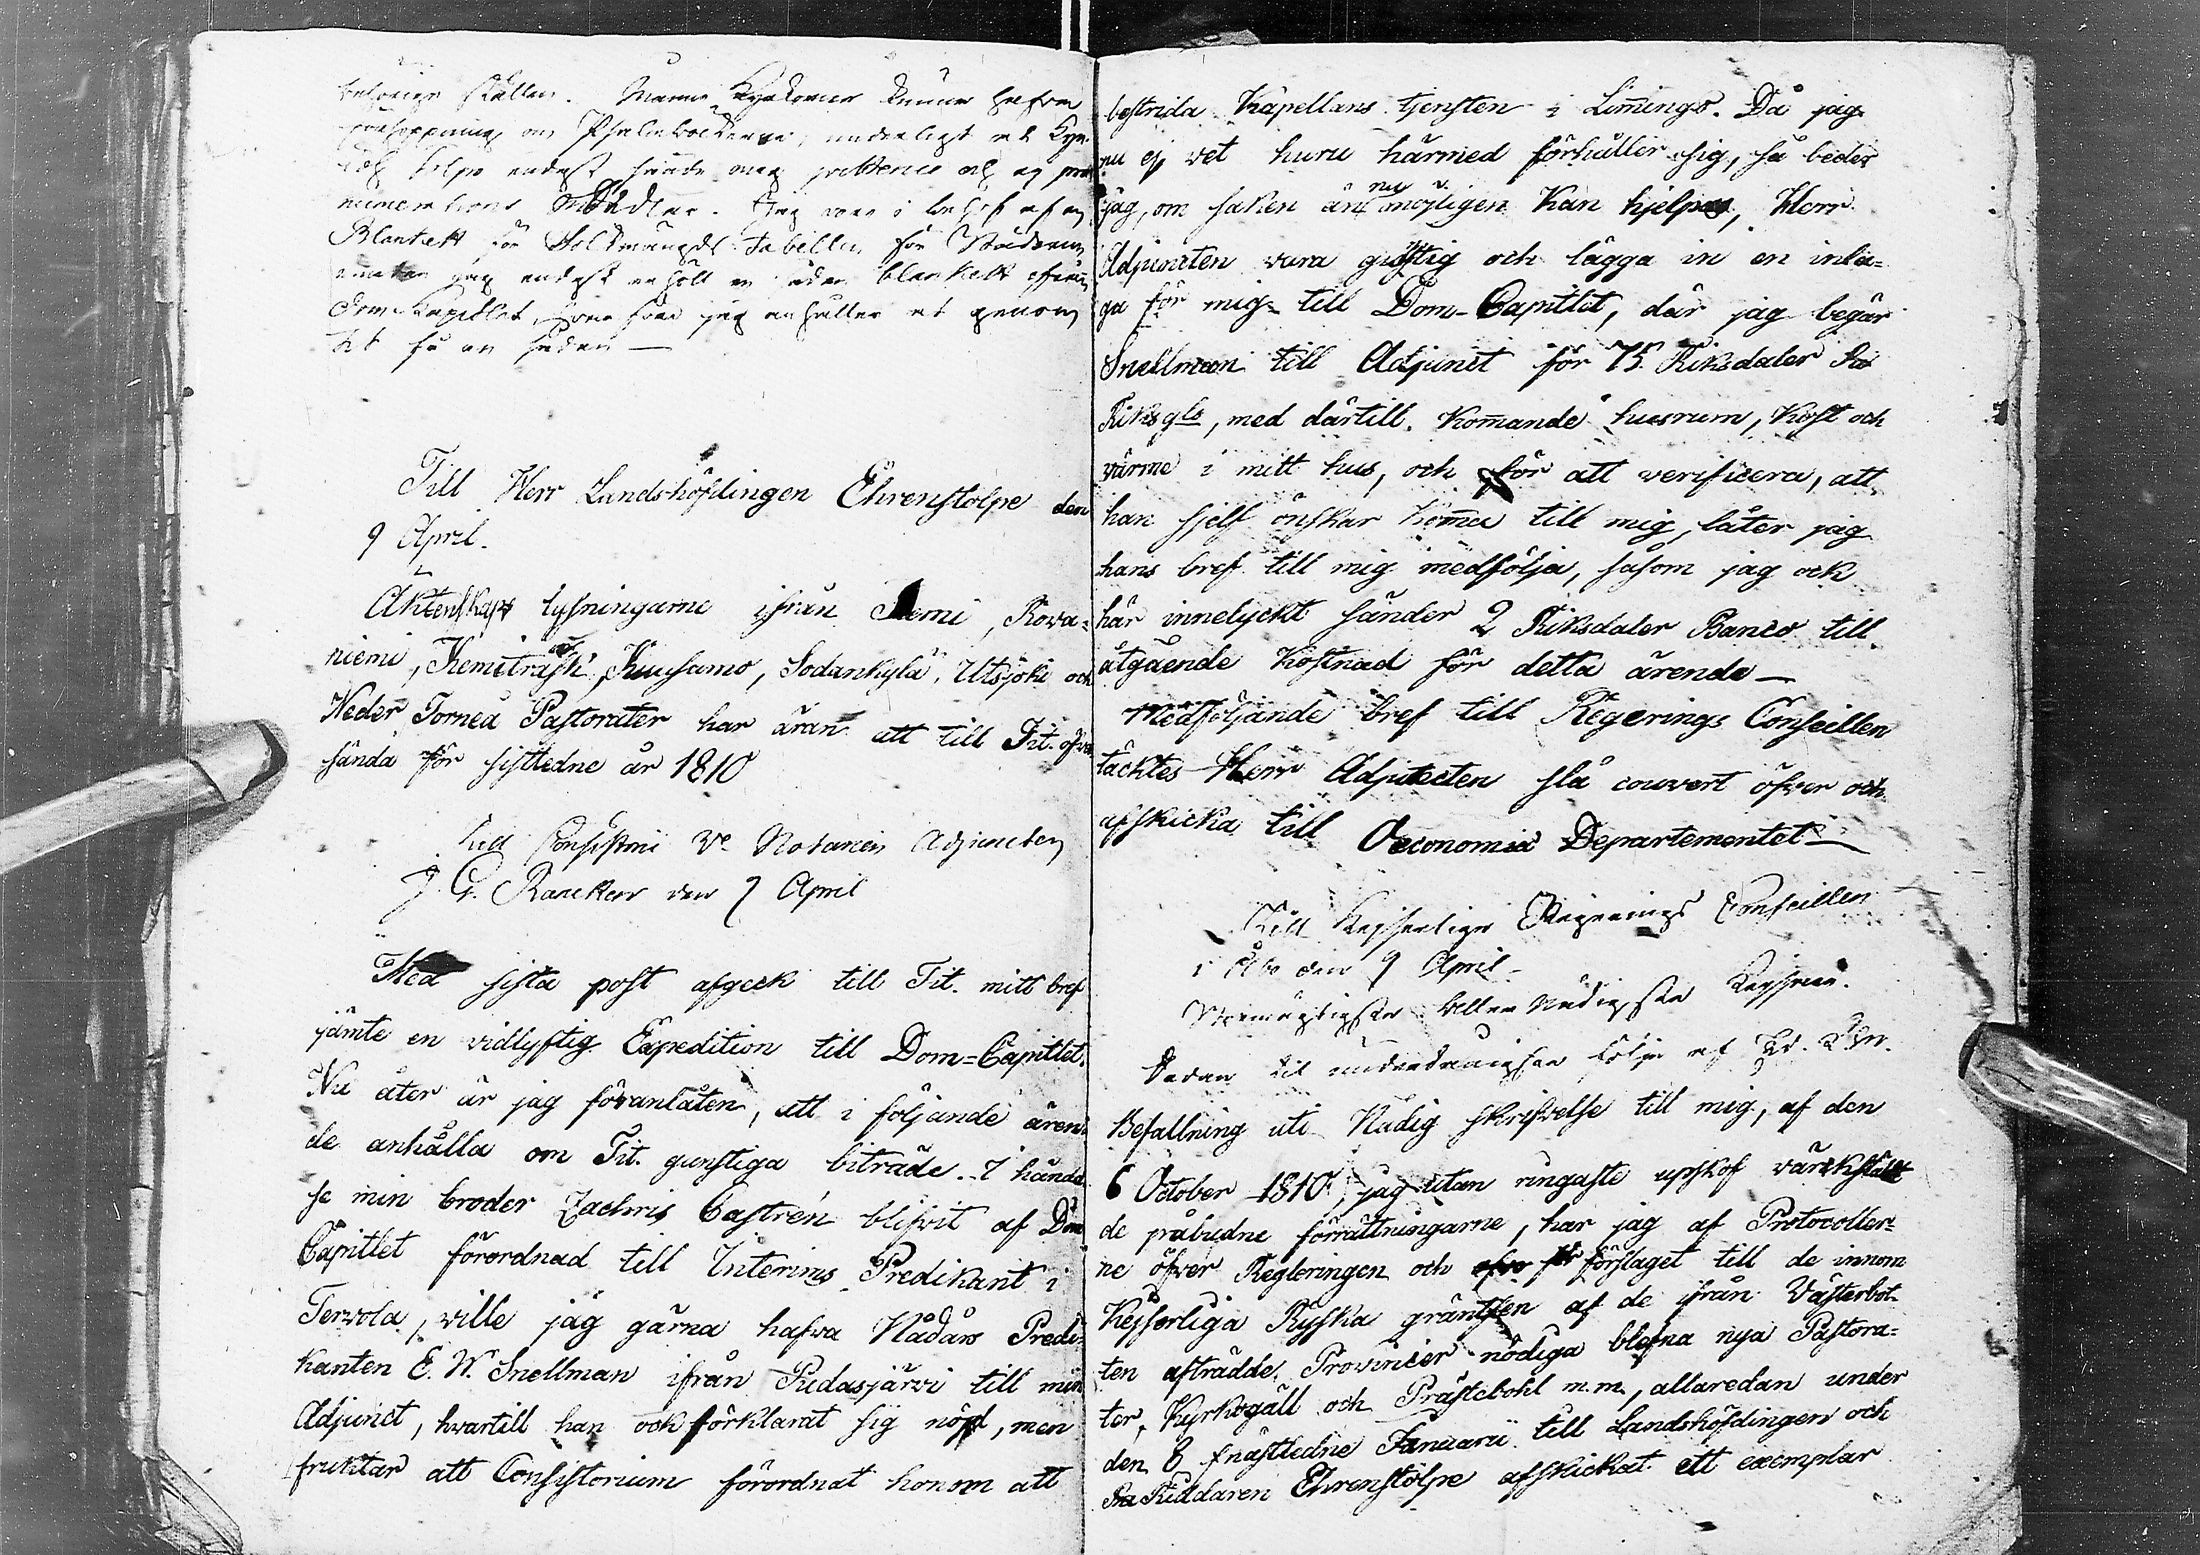 behörige ställen. Manne Kyrkorne kunna hafva
förhoppning om Psalmböckerne, underligt at Kyr-
endast sände mig och ej præ
numerations Sedlar. Jag vore i behof af en
Blankett för Folkmängds-Tabellen för
jag endast erhöll en sådan blankett ifrån
Dom-Kapitlet, jag anhåller at genom
Tit få en sådan —
Till Herr Landshöfdingen Ehrenstolpe den
9 April.
Äktenskaps lysningarne ifrån Kemi, Rova-
niemi, Kemiträsk, Kuusamo, Sodankylä, Utsjoki och
Neder Torneå Pastorater har äran att till Tit. öfver
sända för sistledne år 1810
Till Consistorii Ve Notarien Adjuncten
J. G. Rancken den 9 April
Med sista post afgeck till Tit. mitt bref
jämte en vidlyftig Expedition till Dom-Capitlet.
Nu åter är jag föranlåten, att i följande ären-
de anhålla om Tit. gunstiga biträde. I händel
se min broder Zachris Castrén blifvit af Dom
Capitlet förordnad till Interims Predikant i
Tervola, ville jag gärna hafva Nådårs Predi-
kanten E. W. Snellman ifrån Pudasjärvi till min
Adjunct, hvartill han ock förklarat sig nöjd, men
fruktar att Consistorium förordnat honom att
bestrida Kapellans tjensten i Limingo. Då jag
nu ej vet huru härmed förhåller sig, så beder
jag, om saken än nu möjligen kan hjelpas, Herr
Adjuncten vara gunstig och lägga in en inla-
ga för mig till Dom-Capitlet, där jag begär
Snellman till Adjunct för 75. Riksdaler
Riksgls, med därtill komande husrum, kost och
värme i mitt hus, och för att verificera, att
han sjelf önskar koma till mig, låter jag
hans bref till mig medfölja, såsom jag ock
här innelyckt sänder 2 Riksdaler Banco till
åtgående kostnad för detta ärende —
Medföljande bref till Regerings Conseillen
täcktes Herr Adjuncten slå couvert öfver och
afskicka till Oeconomie Departementet —
Till Kejserliga Regerings Conseillen
i Åbo den 9 April —
Stormägtigste Aller Nådigste Kejsare.
Sedan til underdånigste följe af Ed.
Befallning uti Nådig skrifvelse till mig, af den
6 October 1810, jag utan ringaste upskof värkstält
de påbudne förrättningarne, har jag af Protocoller-
ne öfver Regleringen och förslaget till de innom
Kejserliga Ryska gräntsen af de ifrån Västerbot-
ten afträdde Provincier nödiga blefna nya Pastora-
ter, Kyrkogäll och Prästebohl m.m., allaredan under
den 6 snästledne Januarii till Landshöfdingen och
Riddaren Ehrenstolpe afskickat ett exemplar